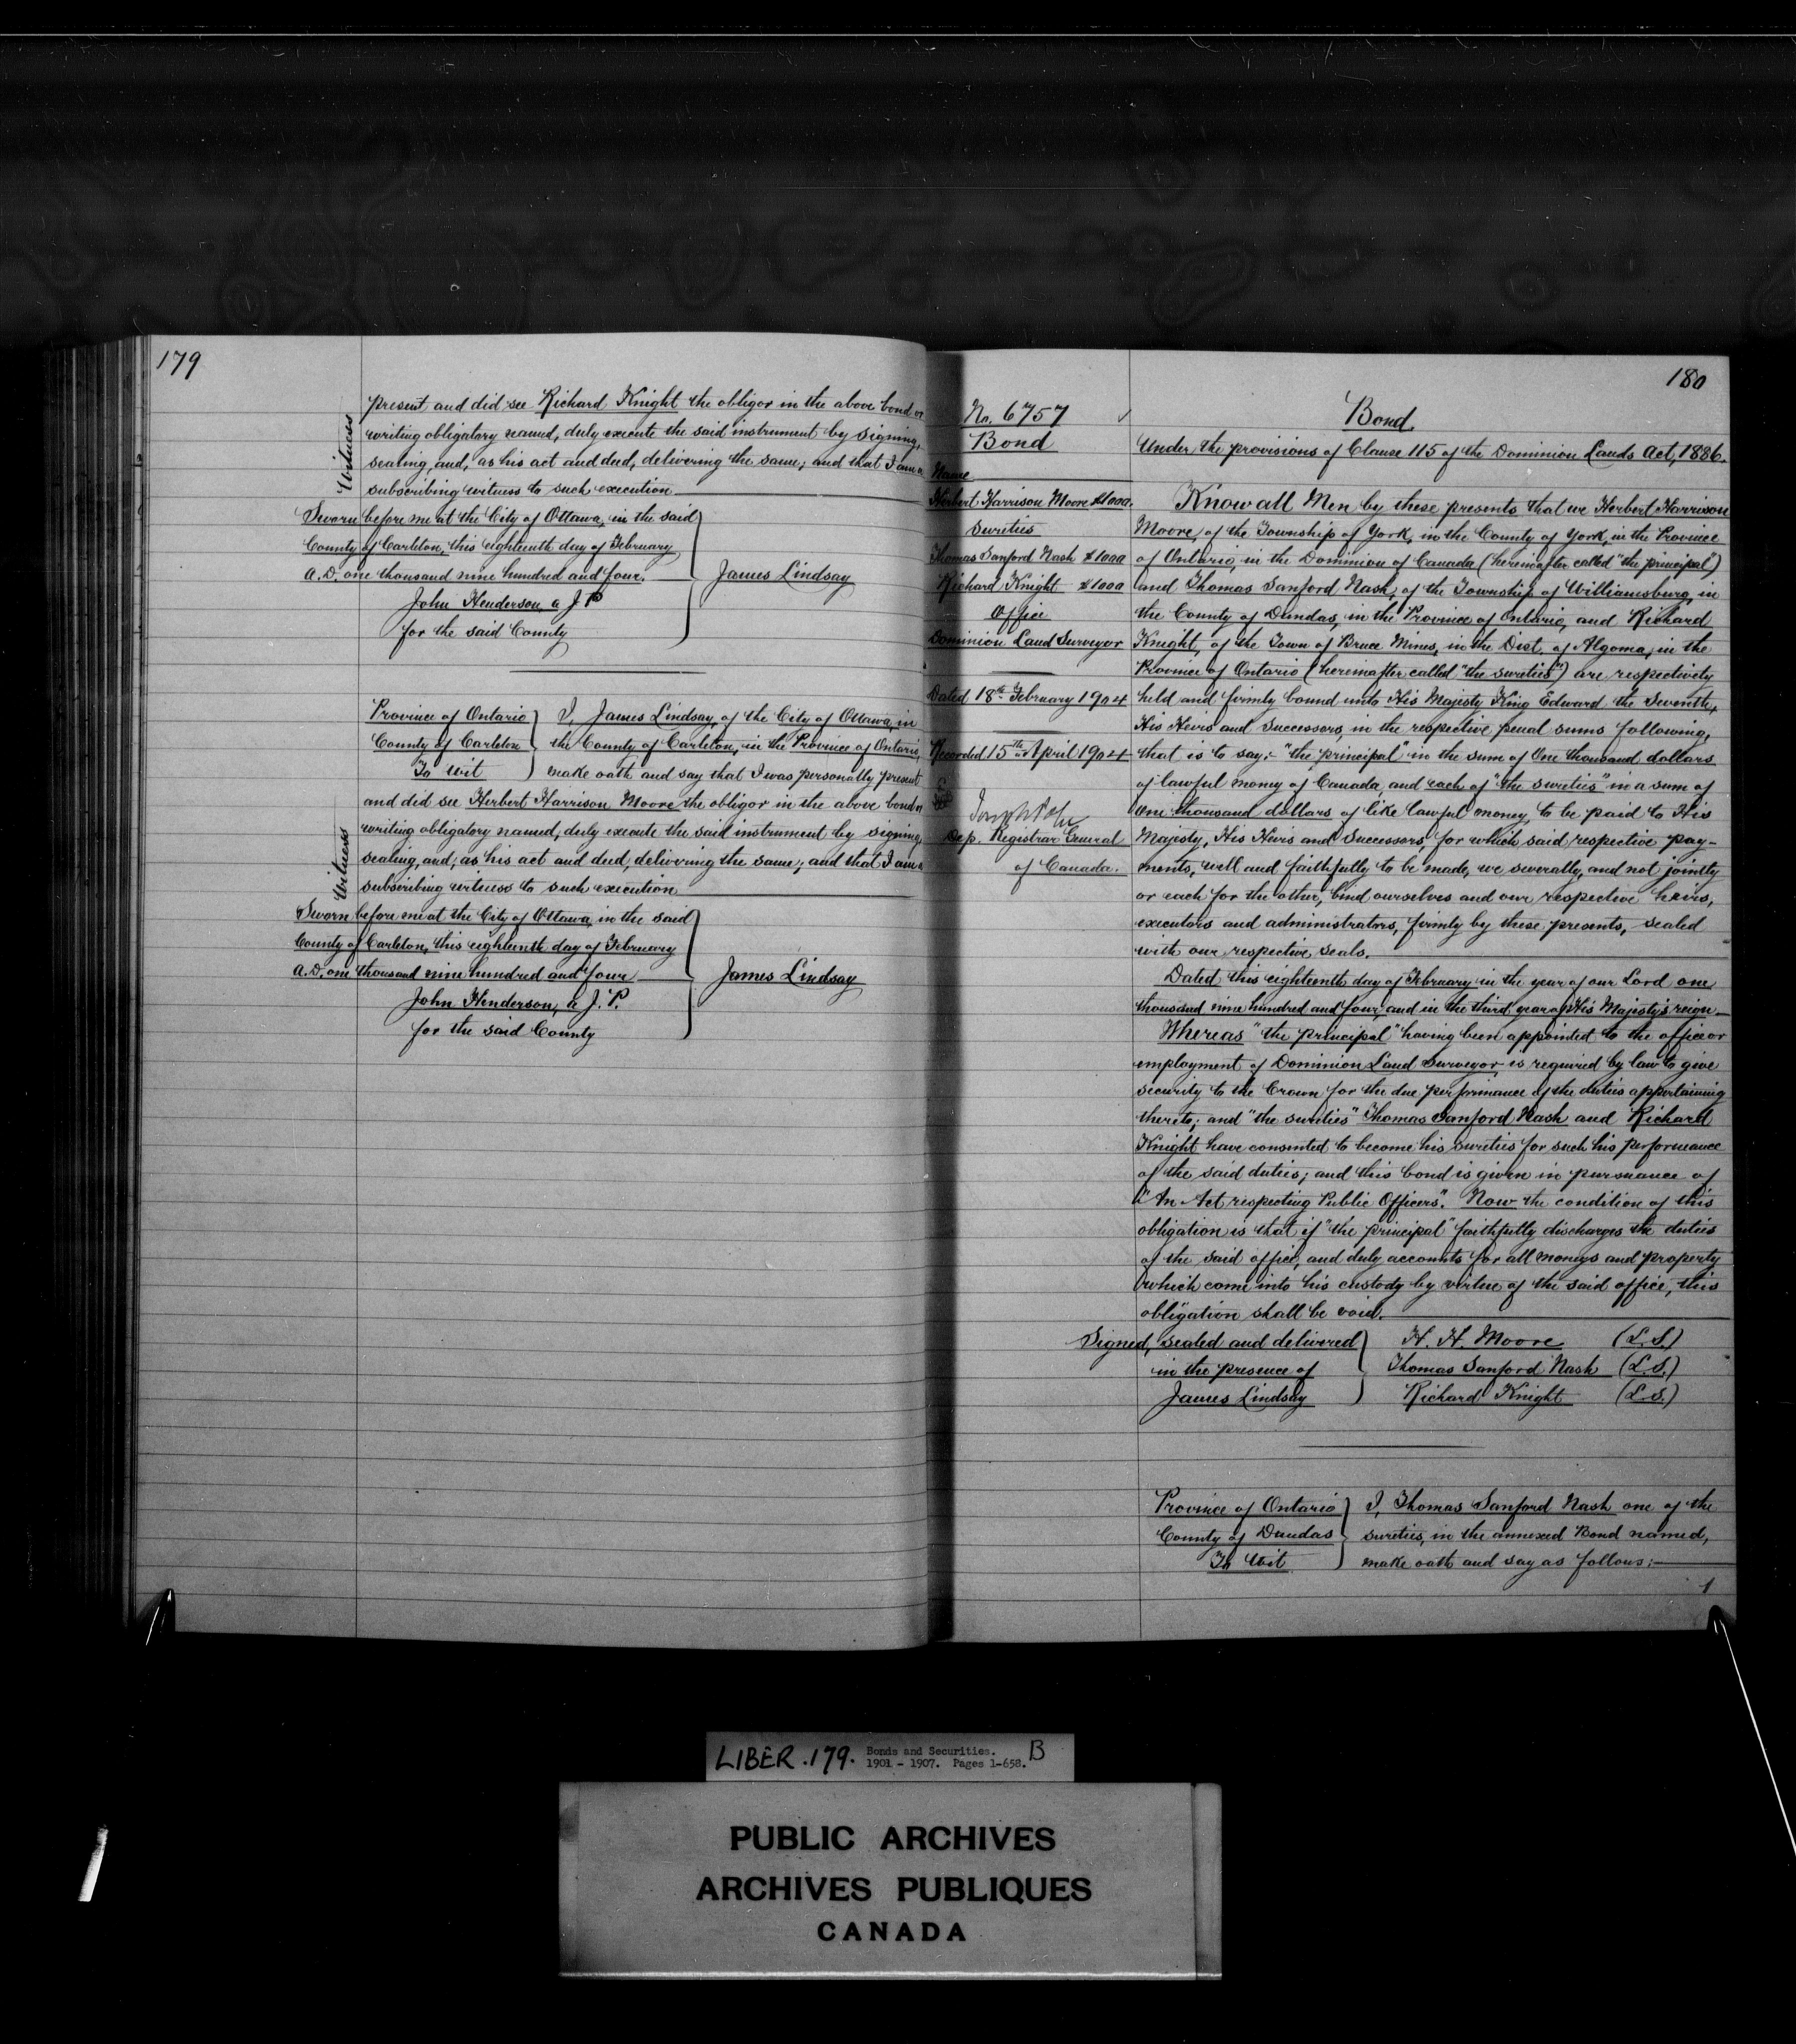 179
present and did see Richard Knight the obligor in the above bond or
writing obligatory named, duly execute the said instrument by signing,
sealing, and, as his act and deed, delivering the same; and that I am a
subscribing witness to such execution
Witness
Sworn before me at the City of Ottawa, in the said
County of Carleton, this eighteenth day of February
A.D. one thousand nine hundred and four.
James Lindsay
John Henderson, a J P
for the said County
Province of Ontario
County of Carleton
To wit
I, James Lindsay, of the City of Ottawa, in
the County of Carleton, in the Province of Ontario,
make oath and say that I was personally present
and did see Herbert Harrison Moore the obligor in the above bond or
writing obligatory named, duly execute the said instrument by signing,
sealing, and, as his act and deed, delivering the same; and that I am a
subscribing witness to such execution
Witness
Sworn before me at the City of Ottawa, in the said
County of Carleton, this eighteenth day of February
A.D. one thousand nine hundred and four
James Lindsay
John Henderson, a J. P.
for the said County
180
No. 6757
Bond
Name
Herbert Harrison Moore $1000.
Sureties
Thomas Sanford Nash $1000
Richard Knight $1000
Office
Dominion Land Surveyor
Dated 18th February 1904
Recorded 15th April 1904
Joseph Pope
Dep. Registrar General
of Canada.
Bond.
Under the provisions of Clause 115 of the Dominion Lands Act, 1886.
Know all Men by these presents that we Herbert Harrison
Moore, of the Township of York, in the County of York, in the Province
of Ontario, in the Dominion of Canada (hereinafter called "the principal")
and Thomas Sanford Nash, of the Township of Williamsburg, in
the County of Dundas, in the Province of Ontario, and Richard
Knight, of the Town of Bruce Mines, in the Dist. of Algoma, in the
Province of Ontario (hereinafter called "the sureties") are respectively
held and firmly bound unto His Majesty King Edward the Seventh,
His Heirs and Successors, in the respective penal sums following,
that is to say:- "the principal" in the sum of One thousand dollars
of lawful money of Canada, and each of "the sureties" in a sum of
One thousand dollars of like lawful money, to be paid to His
Majesty, His Heirs and Successors, for which said respective pay-
ments, well and faithfully to be made, we severally, and not jointly
or each for the other, bind ourselves and our respective heirs,
executors and administrators, firmly by these presents, sealed
with our respective seals.
Dated this eighteenth day of February in the year of our Lord one
thousand nine hundred and four and in the third year of His Majesty's reign
Whereas "the principal" having been appointed to the office or
employment of Dominion Land Surveyor is required by law to give
security to the Crown for the due performance of the duties appertaining
thereto; and "the sureties" Thomas Sanford Nash and Richard
Knight have consented to become his sureties for such his performance
of the said duties; and this bond is given in pursuance of
"An Act respecting Public Officers". Now the condition of this
obligation is that if "the principal" faithfully discharges the duties
of the said office, and duly accounts for all moneys and property
which come into his custody by virtue of the said office, this
obligation shall be void.
Signed, sealed and delivered
in the presence of
James Lindsay
H. H. Moore (L.S.)
Thomas Sanford Nash (L.S.)
Richard Knight (L.S.)
Province of Ontario
County of Dundas
To Wit
I, Thomas Sanford Nash one of the
sureties, in the annexed Bond named,
make oath and say as follows:
1
LIBER .179. Bonds and Securities. B
1901 - 1907. Pages 1-658.
PUBLIC ARCHIVES
ARCHIVES PUBLIQUES
CANADA